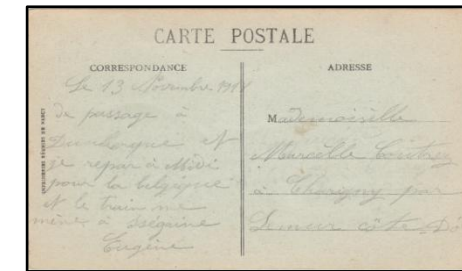 CARTE POSTALE
CORRESPONDANCE
Le 13 Novembre 1918
de passage à
et
je repars à Midi
pour la belgique
et le train me
mène à
Eugène
ADRESSE
Mademoiselle
Marcelle
à Charigny par
Semur côte